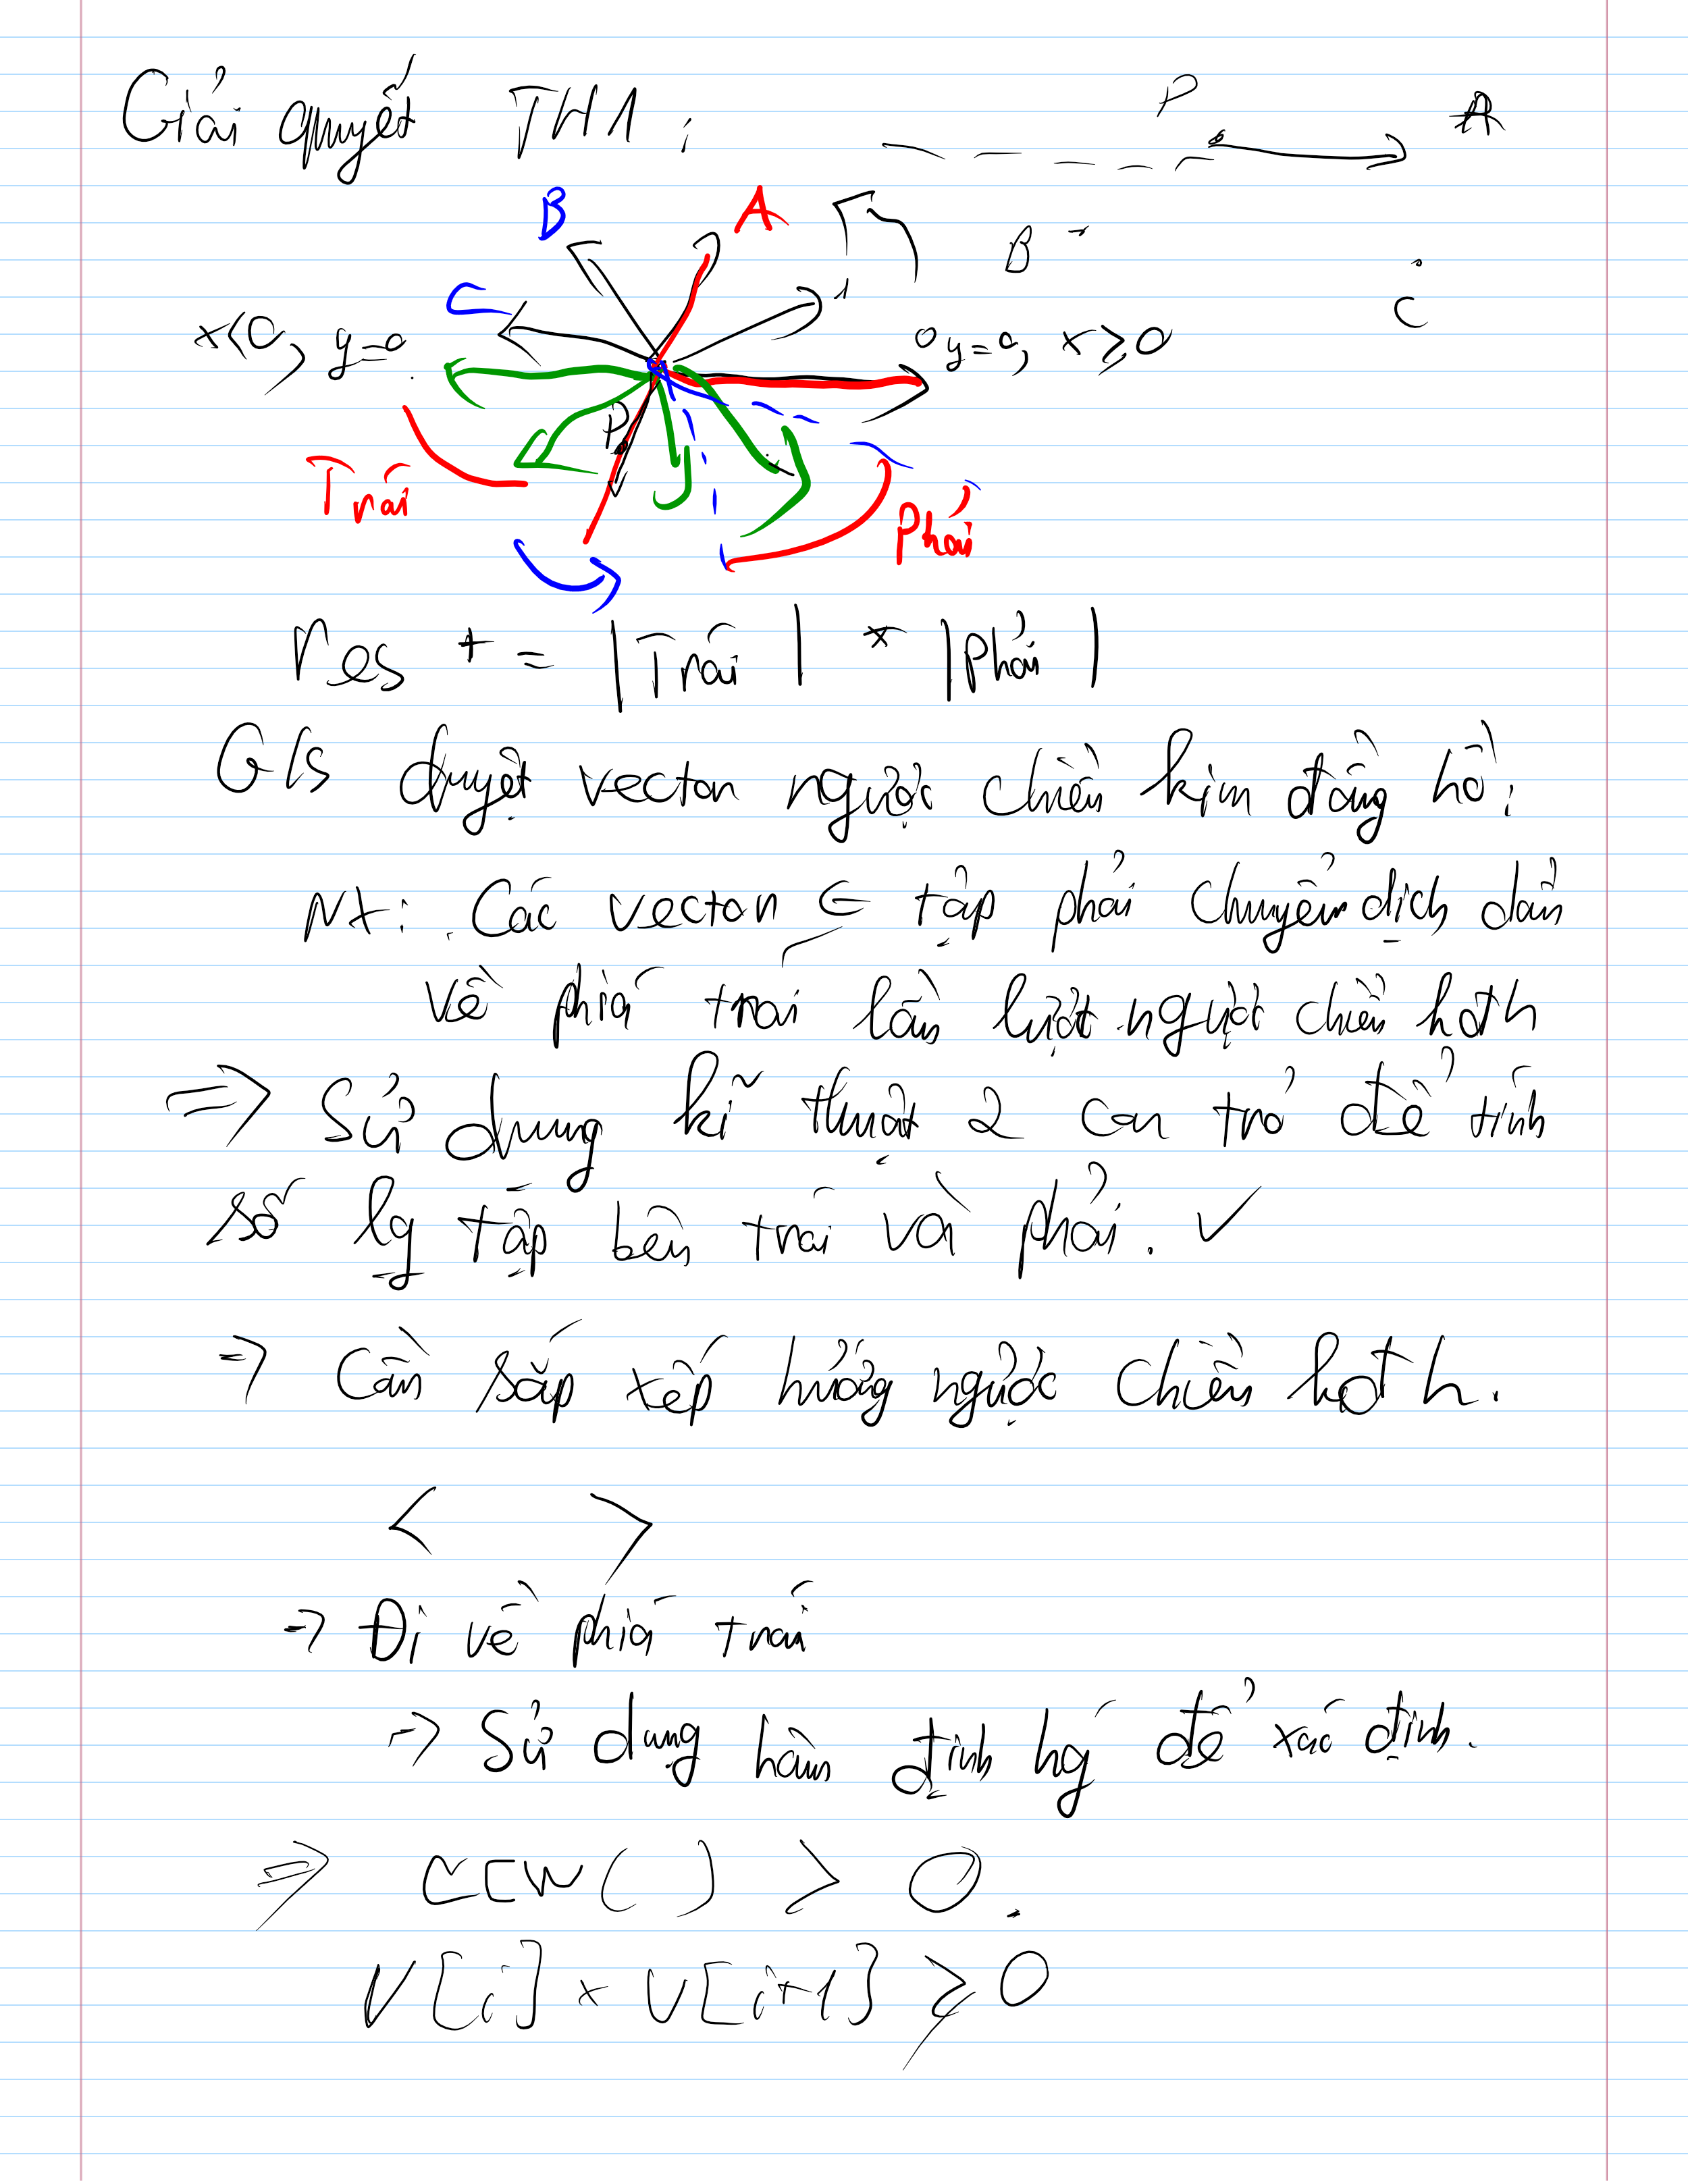 Giải quyết TH1:
P A
B A
B
C
x<0, y=0
y=0, x≥0
P
Trái
Phải
res += |Trái| * |Phải|
G/s duyệt vector ngược chiều kim đồng hồ:
NX: Các vector ∈ tập phải chuyển dịch dần
về phía trái lần lượt ngược chiều kđh
=> Sử dụng kĩ thuật 2 con trỏ để tính
số lg tập bên trái và phải. ✓
=> Cần sắp xếp hướng ngược chiều kđh.
< >
-> Đi về phía trái
-> Sử dụng hàm định hg để xác định.
=> CCW( ) > 0.
V[i] x V[i+1] ≥ 0